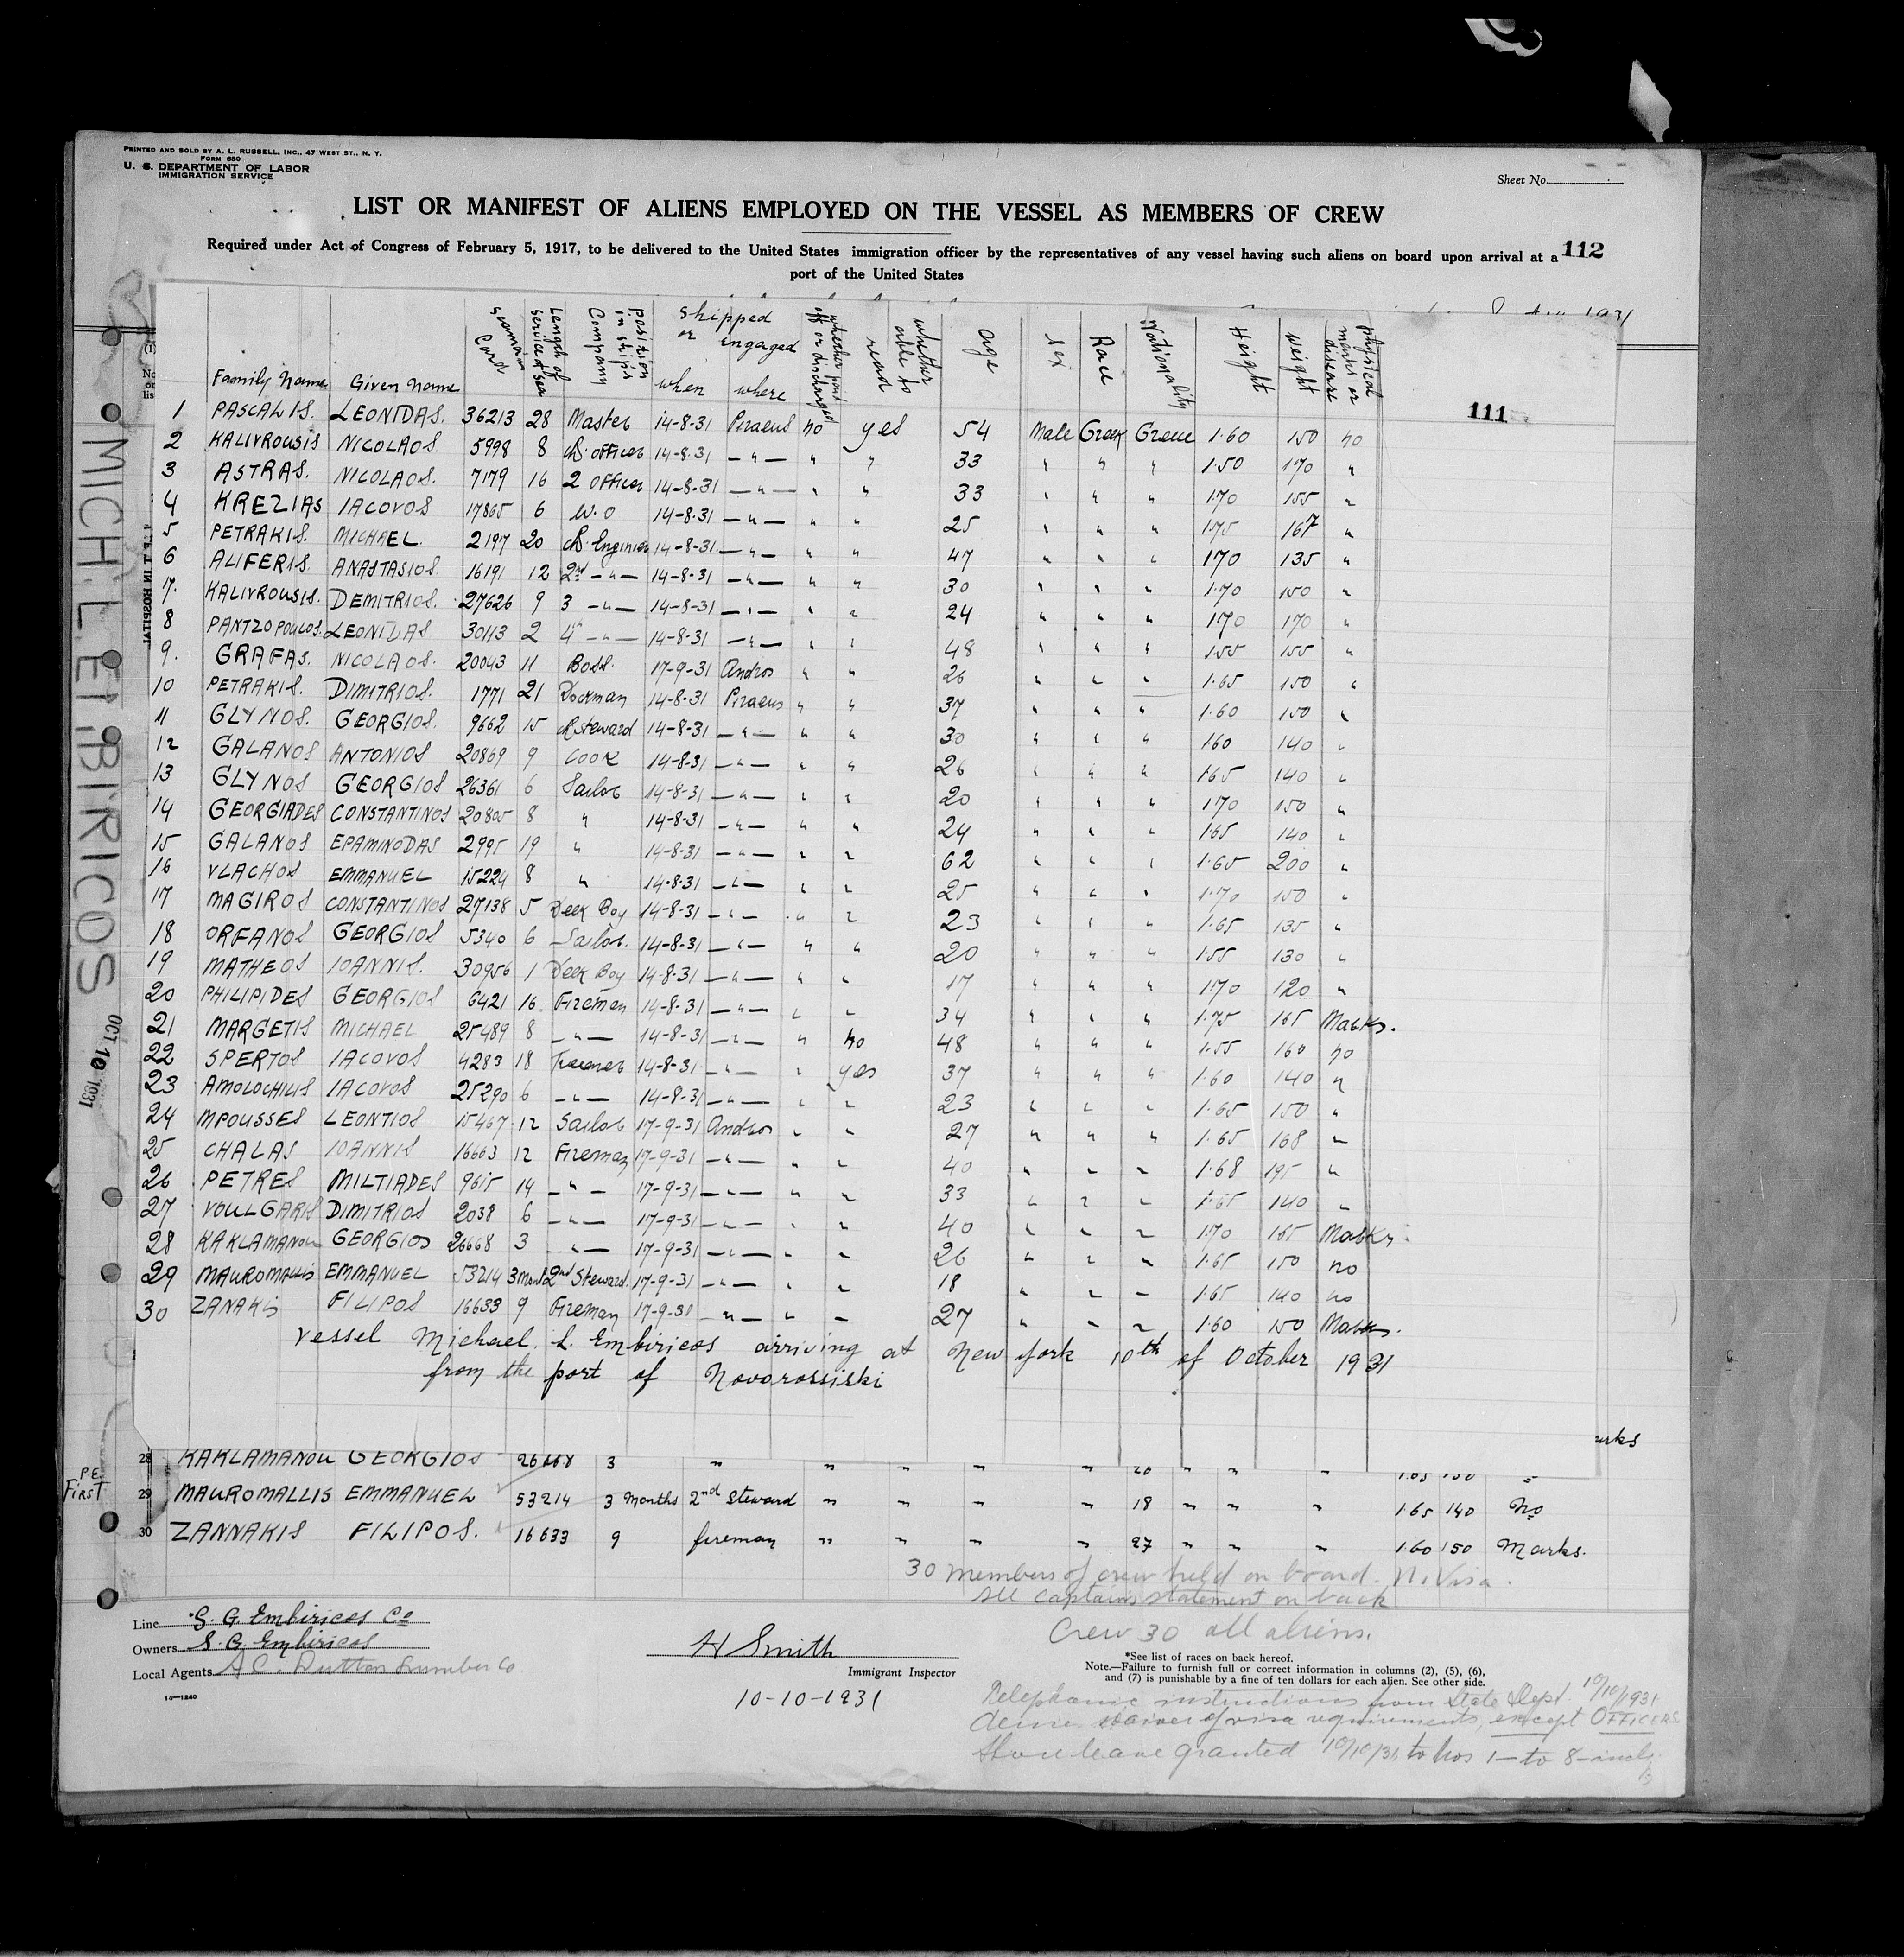 PRINTED AND SOLD BY A. L. RUSSELL, INC., 47 WEST ST., N. Y.
FORM 680
U. S. DEPARTMENT OF LABOR
IMMIGRATION SERVICE
Sheet No.
LIST OR MANIFEST OF ALIENS EMPLOYED ON THE VESSEL AS MEMBERS OF CREW
Required under Act of Congress of February 5, 1917, to be delivered to the United States immigration officer by the representatives of any vessel having such aliens on board upon arrival at a
port of the United States
112
111
Family Name Given Name Seamans Card Length of service at sea position in ship's Company Shipped or engaged when where whether paid off or discharged whether able to read age sex Race Nationality Height Weight physical marks or disease
1 PASCALIS. LEONIDAS. 36213 28 Master 14-8-31 Piraeus no yes 54 Male Greek Greece 1.60 150 no
2 KALIVROUSIS NICOLAOS. 5998 8 ch. officer 14-8-31 —"— " " 33 " " " 1.50 170 "
3 ASTRAS. NICOLAOS. 7179 16 2 officer 14-8-31 —"— " " 33 " " " 170 155 "
4 KREZIAS IACOVOS 17865 6 W.O 14-8-31 —"— " " 25 " " " 175 167 "
5 PETRAKIS. MICHAEL. 2197 20 ch. Enginier 14-8-31 —"— " " 47 " " " 170 135 "
6 ALIFERIS. ANASTASIOS. 16191 12 2nd —"— 14-8-31 —"— " " 30 " " " 1.70 150 "
7. KALIVROUSIS. DEMITRIOS. 27626 9 3 —"— 14-8-31 —"— " " 24 " " " 170 170 "
8 PANTZOPOULOS. LEONIDAS 30113 2 4th —"— 14-8-31 —"— " " 48 " " " 155 155 "
9. GRAFAS. NICOLAOS. 20043 11 Boss. 17-9-31 Andros " " 26 " " " 1.65 150 "
10 PETRAKIS. DIMITRIOS. 1771 21 Dockman 14-8-31 Piraeus " " 37 " " " 1.60 150 "
11 GLYNOS. GEORGIOS. 9662 15 ch steward 14-8-31 —"— " " 30 " " " 160 140 "
12 GALANOS ANTONIOS 20869 9 cook 14-8-31 —"— " " 26 " " " 165 140 "
13 GLYNOS GEORGIOS 26361 6 Sailor 14-8-31 —"— " " 20 " " " 170 150 "
14 GEORGIADES CONSTANTINOS 20805 8 " 14-8-31 —"— " " 24 " " " 165 140 "
15 GALANOS EPAMINODAS 2995 19 " 14-8-31 —"— " " 62 " " " 1.65 200 "
16 VLACHOS EMMANUEL 15224 8 " 14-8-31 —"— " " 25 " " " 1.70 150 "
17 MAGIROS CONSTANTINOS 27138 5 Deck Boy 14-8-31 —"— " " 23 " " " 1.65 135 "
18 ORFANOS GEORGIOS 5340 6 Sailor. 14-8-31 —"— " " 20 " " " 155 130 "
19 MATHEOS IOANNIS. 30956 1 Deck Boy 14-8-31 —"— " " 17 " " " 170 120 "
20 PHILIPIDES GEORGIOS 6421 16 Fireman 14-8-31 —"— " " 34 " " " 1.75 165 Marks.
21 MARGETIS MICHAEL 25489 8 —"— 14-8-31 —"— " no 48 " " " 1.55 160 no
22 SPERTOS IACOVOS 4283 18 14-8-31 —"— " yes 37 " " " 1.60 140 "
23 AMOLOCHITIS IACOVOS 25290 6 —"— 14-8-31 —"— " " 23 " " " 1.65 150 "
24 MPOUSSES LEONTIOS 15467 12 Sailor 17-9-31 Andros " " 27 " " " 1.65 168 "
25 CHALAS IOANNIS 16663 12 Fireman 17-9-31 —"— " " 40 " " " 1.68 195 "
26 PETRES MILTIADES 9615 14 —"— 17-9-31 —"— " " 33 " " " 1.65 140 "
27 VOULGARIS DIMITRIOS 2038 6 —"— 17-9-31 —"— " " 40 " " " 170 165 Marks.
28 KAKLAMANOU GEORGIOS 26668 3 —"— 17-9-31 —"— " " 26 " " " 1.65 150 no
29 MAUROMALLIS EMMANUEL 53214 3 Mont 2nd Steward. 17-9-31 —"— " " 18 " " " 1.65 140 no
30 ZANAKIS FILIPOS 16633 9 Fireman 17-9-31 —"— " " 27 " " " 1.60 150 Marks.
vessel Michael. L. Embiricos arriving at New York 10th of October 1931
from the port of Novorossiski
28 KAKLAMANOU GEORGIOS 26668 3 " " " " " " " "
29 MAUROMALLIS EMMANUEL 53214 3 Months 2nd steward " " " " 18 " " " 1.65 140 No
30 ZANNAKIS FILIPOS. 16633 9 fireman " " " " 27 " " " 1.60 150 Marks.
P.E.
FIRST
30 members of crew held on board. No Visa.
See captains statement on back
Crew 30 all aliens.
Line S. G. Embiricos Co
Owners S. G. Embiricos
Local Agents A C. Dutton Lumber Co
14—1240
H Smith
Immigrant Inspector
10-10-1931
*See list of races on back hereof.
Note.—Failure to furnish full or correct information in columns (2), (5), (6),
and (7) is punishable by a fine of ten dollars for each alien. See other side.
Telephonic instructions from State Dept. 10/10/1931
waiver of visa requirements, except OFFICERS
Shore leave granted 10/10/31, to nos 1 — to 8 — incl.
MICH. L. EMBIRICOS
OCT 10 1931